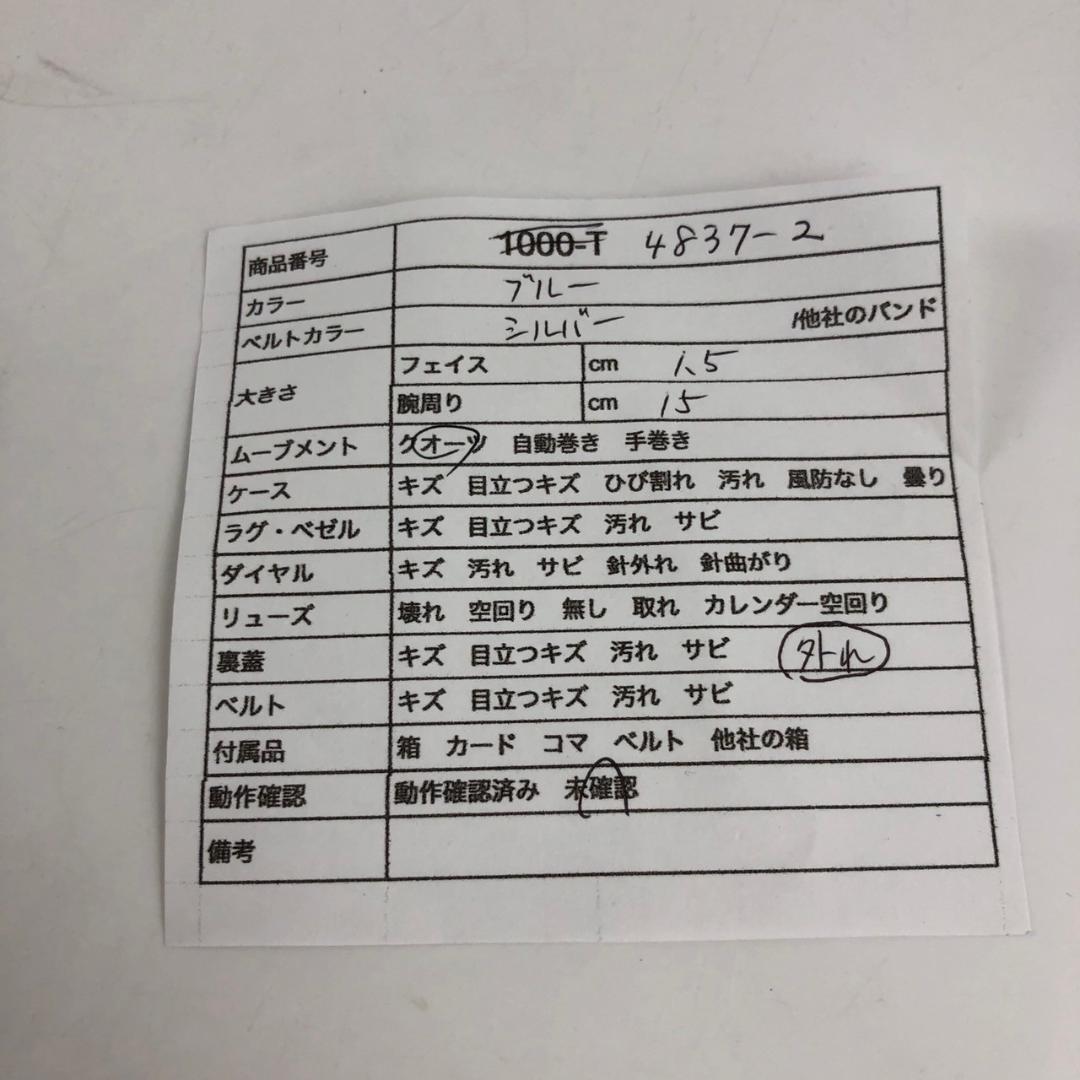 商品番号 1000-T 4837-2
カラー ブルー
ベルトカラー シルバー /他社のバンド
大きさ フェイス cm 1.5
腕周り cm 15
ムーブメント クオーツ 自動巻き 手巻き
ケース キズ 目立つキズ ひび割れ 汚れ 風防なし 曇り
ラグ・ベゼル キズ 目立つキズ 汚れ サビ
ダイヤル キズ 汚れ サビ 針外れ 針曲がり
リューズ 壊れ 空回り 無し 取れ カレンダー空回り
裏蓋 キズ 目立つキズ 汚れ サビ 外れ
ベルト キズ 目立つキズ 汚れ サビ
付属品 箱 カード コマ ベルト 他社の箱
動作確認 動作確認済み 未確認
備考